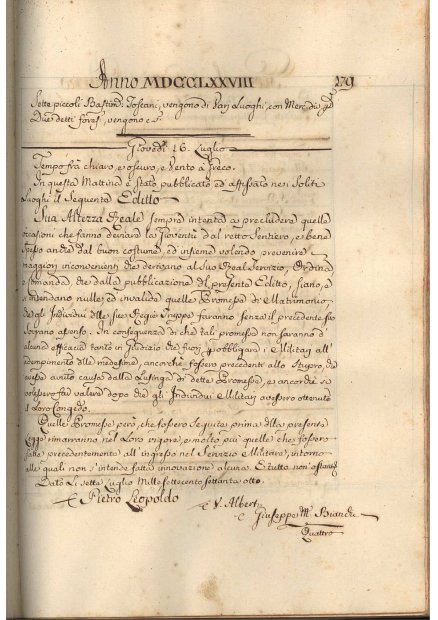 Anno MDCCLXXVIII
Sette piccoli Bastim.ti Toscani, vengono di Varj Luoghi, con Merci di
Due detti fores.i vengono e S
Giovedì 16. Luglio
Tempo frà chiaro, e oscuro, e Vento à Greco.
In questa Mattina è stato pubblicato ed affissato nei Soliti
Luoghi il Seguente Editto
Sua Altezza Reale sempre intenta a precludere quelle
occasioni che fanno deviare la Gioventù dal retto Sentiero, e bene
spesso anche dal buon costume, ed insieme volendo prevenire
maggiori inconvenienti che derivano al Suo Real Servizio, Ordina
e comanda, che dalla pubblicazione del presente Editto, siano, e
s'intendano nulle, ed invalide quelle Promesse di Matrimonio,
che gl'Individui delle sue Regie Truppe faranno senza il precedente suo
Sovrano assenso. In conseguenza di che tali promesse non saranno d'
alcuna efficacia tanto in Giudizio che fuori p obbligare i Militari all'
adempimento delle medesime, ancorchè fossero precedenti allo Stupro, che
avesse avuto causa dalla Lusinga di dette Promesse, e ancorchè si
volessero far valere dopo che gli Individui Militari avessero ottenuto
il Loro Congedo.
Quelle Promesse però, che fossero seguite prima della presente
Legge rimarranno nel Loro vigore, e molto più quelle che fossero
fatte precedentemente all'ingresso nel Servizio Militare, intorno
alle quali non s'intende fatta innovazione alcuna. E tutto non ostante
Dato Li Sette Luglio Mille settecento settanta otto.
Pietro Leopoldo
V. Alberti
Giuseppe M.a Bianchi
Quattro